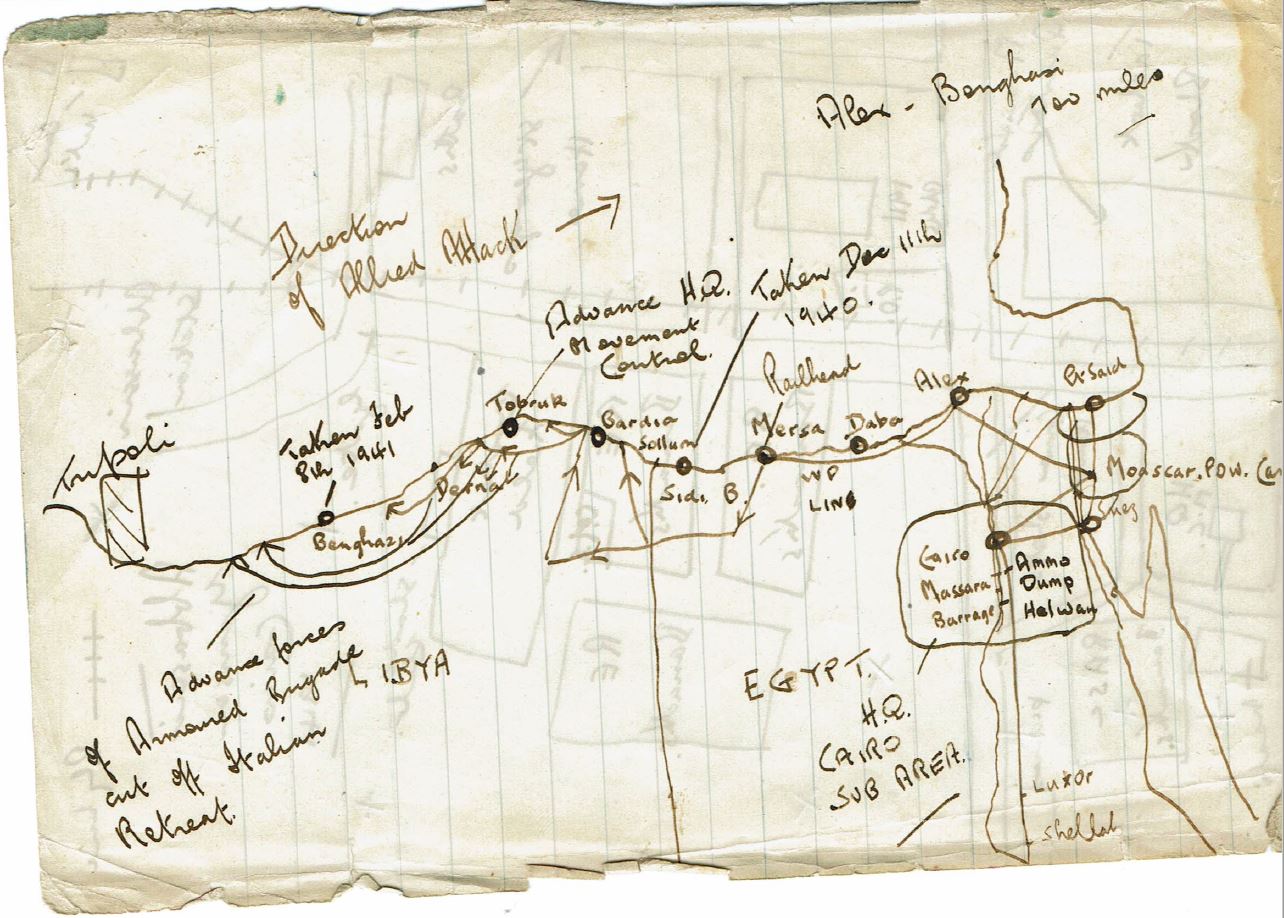 Alex - Benghasi
700 miles
Direction
of Allied Attack
Advance H.Q.
Movement
Control.
Taken Dec 11th
1940.
Railhead
Alex
Pt Said
Tobruk
Bardia
Sollum
Mersa
Daba
Tripoli
Taken Feb
8th 1941
Derna
Sidi B.
WP
LINE
Moascar. POW. Ca
Suez
Benghazi
Cairo
Massara
Barrage
Ammo
Dump
Helwan
Advance forces
of Armoured Brigade
cut off Italian
Retreat.
LIBYA
EGYPT.
H.Q.
CAIRO
SUB AREA.
Luxor
Shellal